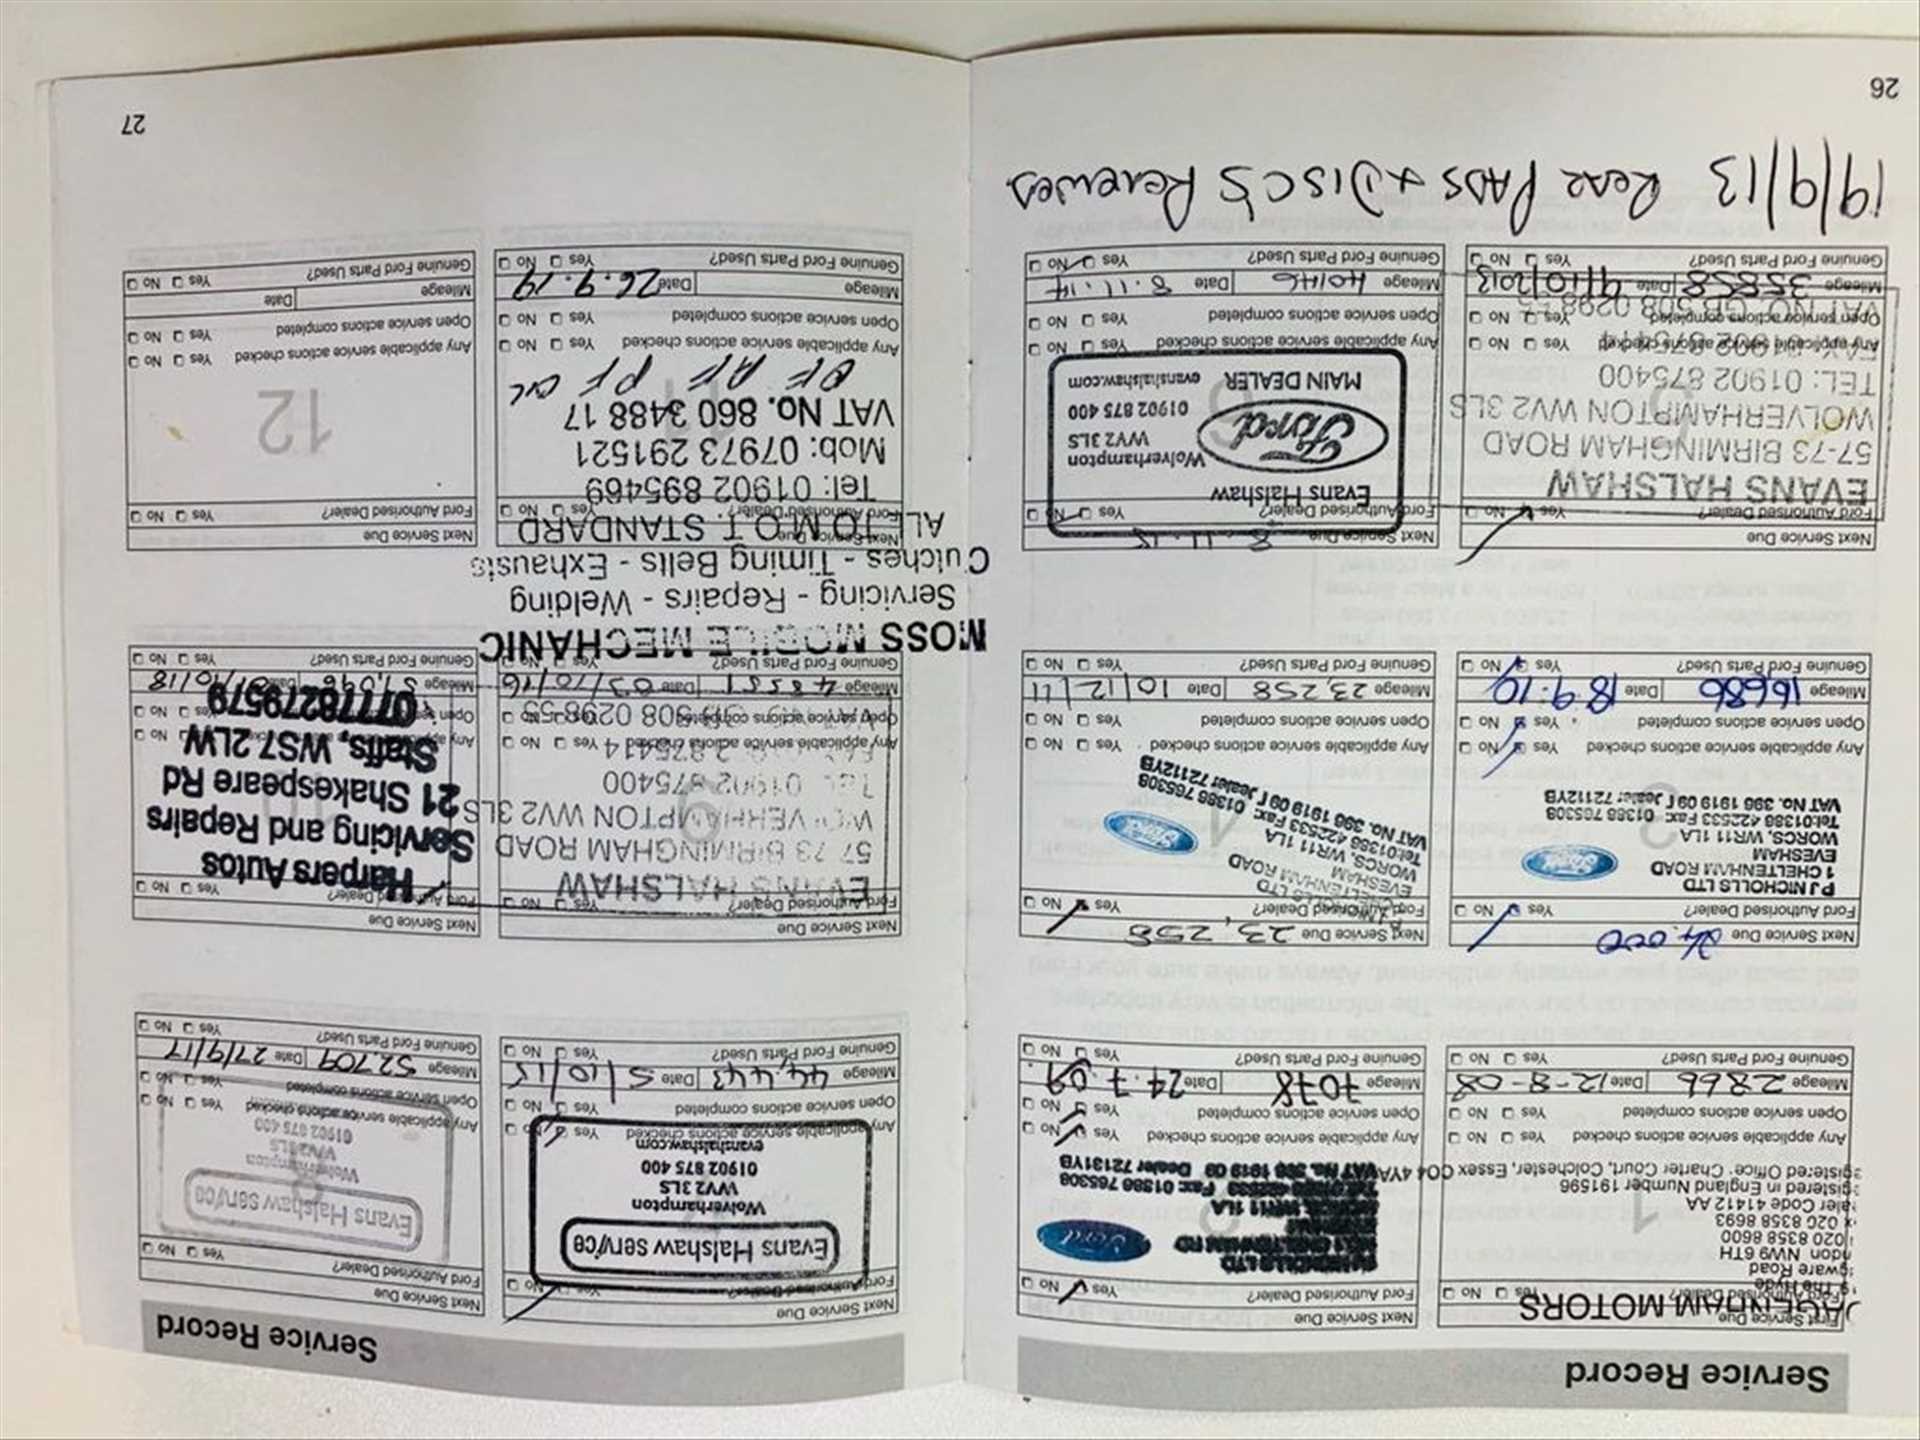 Service Record
First Service Due
DAGENHAM MOTORS
The Hyde
gware Road
ndon NW9 6TH
020 8358 8600
020 8358 8693
aler Code 41412 AA
gistered in England Number 191596
gistered Office: Charter Court, Colchester, Essex CO4 4YA
Any applicable service actions checked Yes No
Open service actions completed Yes No
Mileage 2866 Date 12-8-08
Genuine Ford Parts Used? Yes No
Next Service Due
Ford Authorised Dealer? Yes No
2
P J NICHOLLS LTD
WR11 1LA
Fax: 01386 765308
VAT No. 396 1919 09 Dealer 72131YB
Any applicable service actions checked Yes No
Open service actions completed Yes No
Mileage 7078 Date 24.7.09
Genuine Ford Parts Used? Yes No
Next Service Due 24,000
Ford Authorised Dealer? Yes No
3
P J NICHOLLS LTD
1 CHELTENHAM ROAD
EVESHAM
WORCS, WR11 1LA
Tel:01386 422533 Fax: 01386 765308
VAT No. 396 1919 09 Dealer 72112YB
Ford
Any applicable service actions checked Yes No
Open service actions completed Yes No
Mileage 16,686 Date 18.9.10
Genuine Ford Parts Used? Yes No
Next Service Due 23,258
Ford Authorised Dealer? Yes No
4
CHELTENHAM ROAD
EVESHAM
WORCS, WR11 1LA
Tel:01386 422533 Fax: 01386 765308
VAT No. 396 1919 09 Dealer 72112YB
Ford
Any applicable service actions checked Yes No
Open service actions completed Yes No
Mileage 23,258 Date 10/12/11
Genuine Ford Parts Used? Yes No
Next Service Due
Ford Authorised Dealer? Yes No
5
EVANS HALSHAW
57-73 BIRMINGHAM ROAD
WOLVERHAMPTON WV2 3LS
TEL: 01902 875400
FAX: 01902 875414
VAT NO. GB 308 0298 55
Any applicable service actions checked Yes No
Open service actions completed Yes No
Mileage 35858 Date 9/10/2013
Genuine Ford Parts Used? Yes No
Next Service Due 8.11.15
Ford Authorised Dealer? Yes No
6
Evans Halshaw
Ford
MAIN DEALER
Wolverhampton
WV2 3LS
01902 875 400
evanshalshaw.com
Any applicable service actions checked Yes No
Open service actions completed Yes No
Mileage 40146 Date 8.11.14
Genuine Ford Parts Used? Yes No
19/9/13 REAR PADS + DISC'S RENEWED
26
Service Record
Next Service Due
Ford Authorised Dealer? Yes No
Evans Halshaw service
Wolverhampton
WV2 3LS
01902 875 400
evanshalshaw.com
Any applicable service actions checked Yes No
Open service actions completed Yes No
Mileage 44,443 Date 5/10/15
Genuine Ford Parts Used? Yes No
Next Service Due
Ford Authorised Dealer? Yes No
8
Evans Halshaw service
Wolverhampton
WV2 3LS
01902 875 400
Any applicable service actions checked Yes No
Open service actions completed Yes No
Mileage 52,709 Date 27/9/17
Genuine Ford Parts Used? Yes No
Next Service Due
Ford Authorised Dealer? Yes No
9
EVANS HALSHAW
57-73 BIRMINGHAM ROAD
WOLVERHAMPTON WV2 3LS
TEL: 01902 875400
Any applicable service actions checked Yes No
Open service actions completed Yes No
Mileage 48551 Date 03/10/16
Genuine Ford Parts Used? Yes No
Next Service Due
Ford Authorised Dealer? Yes No
10
Harpers Autos
Servicing and Repairs
21 Shakespeare Rd
Staffs, WS7 2LW
07778279579
Mileage Date 10/18
Genuine Ford Parts Used? Yes No
MOSS MOBILE MECHANIC
Servicing - Repairs - Welding
Cutches - Timing Bells - Exhausts
ALL TO M.O.T. STANDARD
Next Service Due
Ford Authorised Dealer? Yes No
Tel: 01902 895469
Mob: 07973 291521
VAT No. 860 3488 17
11
OF AF PF
Any applicable service actions checked Yes No
Open service actions completed Yes No
Mileage Date 26.9.19
Genuine Ford Parts Used? Yes No
Next Service Due
Ford Authorised Dealer? Yes No
12
Any applicable service actions checked Yes No
Open service actions completed Yes No
Mileage Date
Genuine Ford Parts Used? Yes No
27